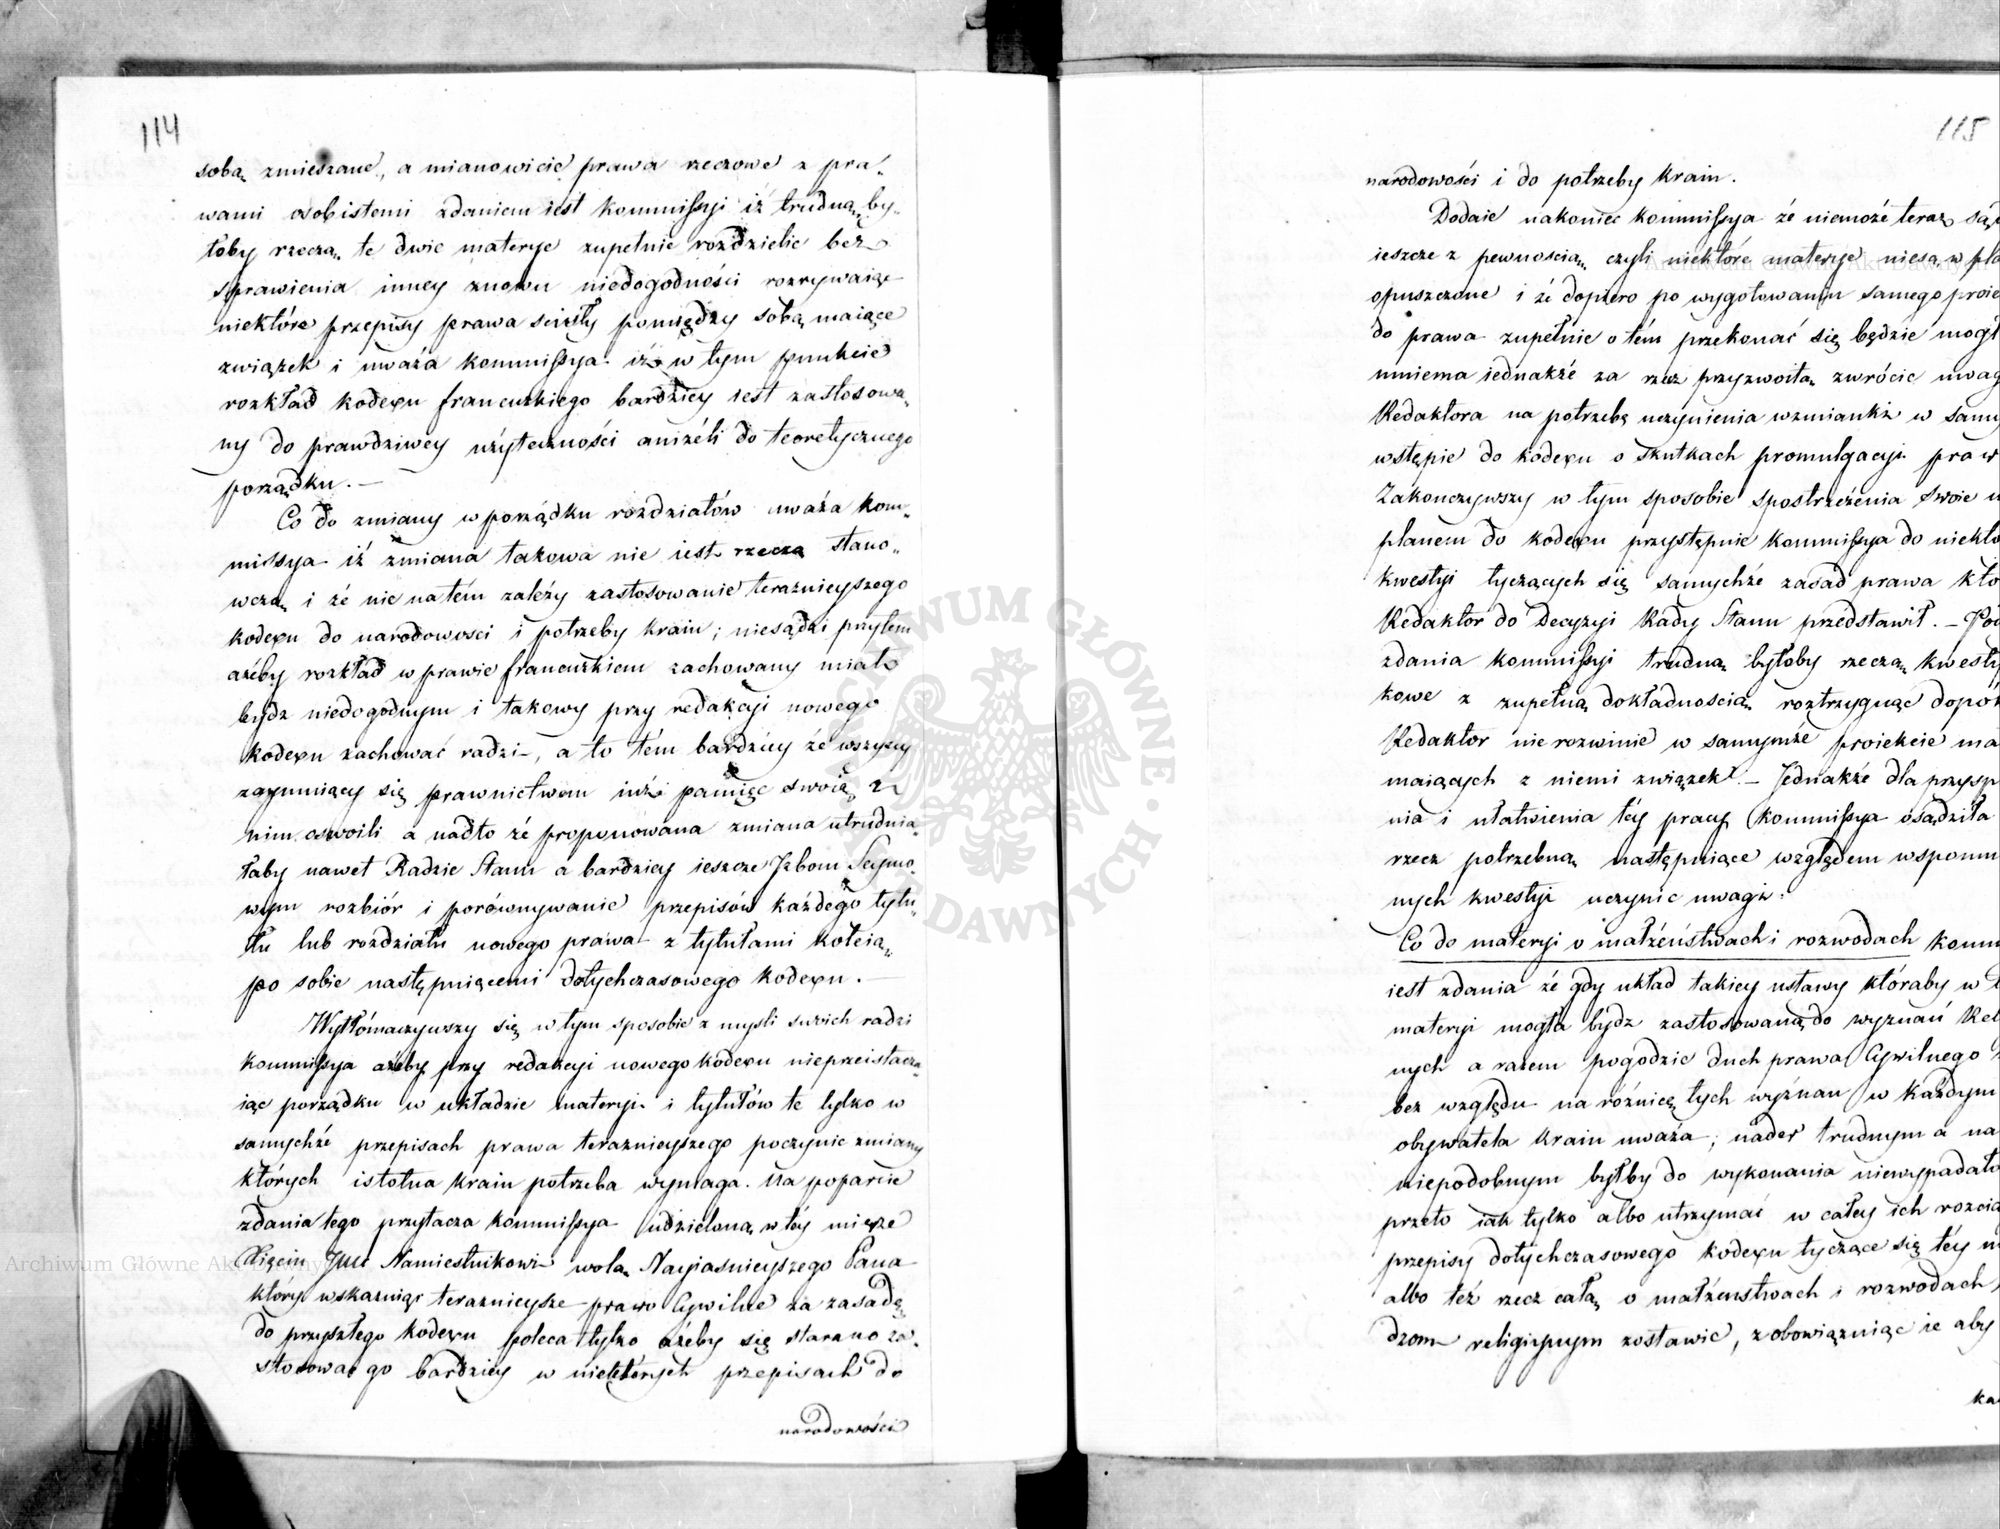 114
sobą zmieszane, a mianowicie prawa rzeczowe z pra„
wami osobistemi zdaniem iest kommissyi iż trudną by„
łoby rzeczą te dwie materye zupełnie rozdzielic bez
sprawienia inney znowu niedogodności rozrywaiąc
niektóre przepisy prawa scisły pomiędzy sobą maiące
związek i uważa kommissya iż w tym punkcie
rozkład kodexu francuzkiego bardziey iest zastosowa„
ny do prawdziwey użyteczności aniżeli do teoretycznego
porządku. —
Co do zmiany w porządku rozdziałów uważa kom„
missya iż zmiana takowa nie iest rzeczą stano„
wczą i że nie natém zależy zastosowanie teraznieyszego
kodexu do narodowosci i potrzeby krain; niesądzi przytem
ażeby rozkład w prawie francuzkiem zachowany miał
bydz niedogodnym i takowy przy redakcyi nowego
kodexu zachować radzi, a to tém bardziey że wszyscy
zaymuiący się prawnictwem iuż pamięc swoię z
nim oswoili a nadto że proponowana zmiana utrudnia„
łaby nawet Radzie Stanu a bardziey ieszcze Izbom Seymo„
wym rozbiór i porównywanie przepisów każdego tytu„
łu lub rozdziału nowego prawa z tytułami koleią
po sobie następuiącemi dotychczasowego kodexu. —
Wytłómaczywszy się w tym sposobie z mysli swoich radzi
kommissya ażeby przy redakcyi nowego kodexu nieprzeistacza„
iąc porządku w układzie materyi i tytułów te tylko w
samychże przepisach prawa teraznieyszego poczynic zmiany
których istotna krain potrzeba wymaga. Na poparcie
zdania tego przytacza kommissya udzieloną w téy mierze
Xięciu Jmci Namiestnikowi wolą Nayiasnieyszego Pana
który wskazuiąc teraznieysze prawo Cywilne za zasadę
do przyszłego kodexu poleca tylko ażeby się starano za„
stosowac go bardziey w niektórych przepisach do
narodowości
115
narodowości i do potrzeby krain.
Dodaie nakoniec kommissya że niemoże teraz są
ieszcze z pewnoscią czyli niektóre materye niesą w pla
opuszczone i że dopiero po wygotowaniu samego proie
do prawa zupełnie o tém przekonać się będzie mogł
mniema iednakże za rzecz przyzwoitą zwrócic uwag
Redaktora na potrzebę uczynienia wzmianki w samy
wstępie do kodexu o skutkach promulgacyi praw
Zakonczywszy w tym sposobie spostrzeżenia swoie n
planem do kodexu przystępuie kommissya do niektó
kwestyi tyczących się samychże zasad prawa któ
Redaktor do Decyzyi Rady Stanu przedstawił. — Pod
zdania kommissyi trudną byłoby rzeczą kwesty
kowe z zupełną dokładnoscią roztrzygnąc dopók
Redaktor nierozwinie w samymże proiekcie ma
maiących z niemi związek. — Jednakże dla przysp
nia i ułatwienia téy pracy kommissya osądziła
rzecz potrzebną następuiące względem wspomn
nych kwestyi uczynic uwagi:
Co do materyi o małżeństwach i rozwodach komm
iest zdania że gdy układ takiey ustawy któraby w t
materyi mogła bydz zastosowaną do wyznań Rel
nych a razem pogodzic duch prawa Cywilnego
bez względu na różnicę tych wyznan w każdym
obywatela krain uważa; nader trudnym a na
niepodobnym byłby do wykonania niewypadało
przeto iak tylko albo utrzymać w całey ich rozcią
przepisy dotychczasowego kodexu tyczące się téy m
albo też rzecz całą o małżenstwach i rozwodach,
dzom religiynym zostawic, zobowiązuiąc ie aby
ka
Archiwum Główne Akt Dawnych
ARCHIWUM GŁÓWNE AKT DAWNYCH